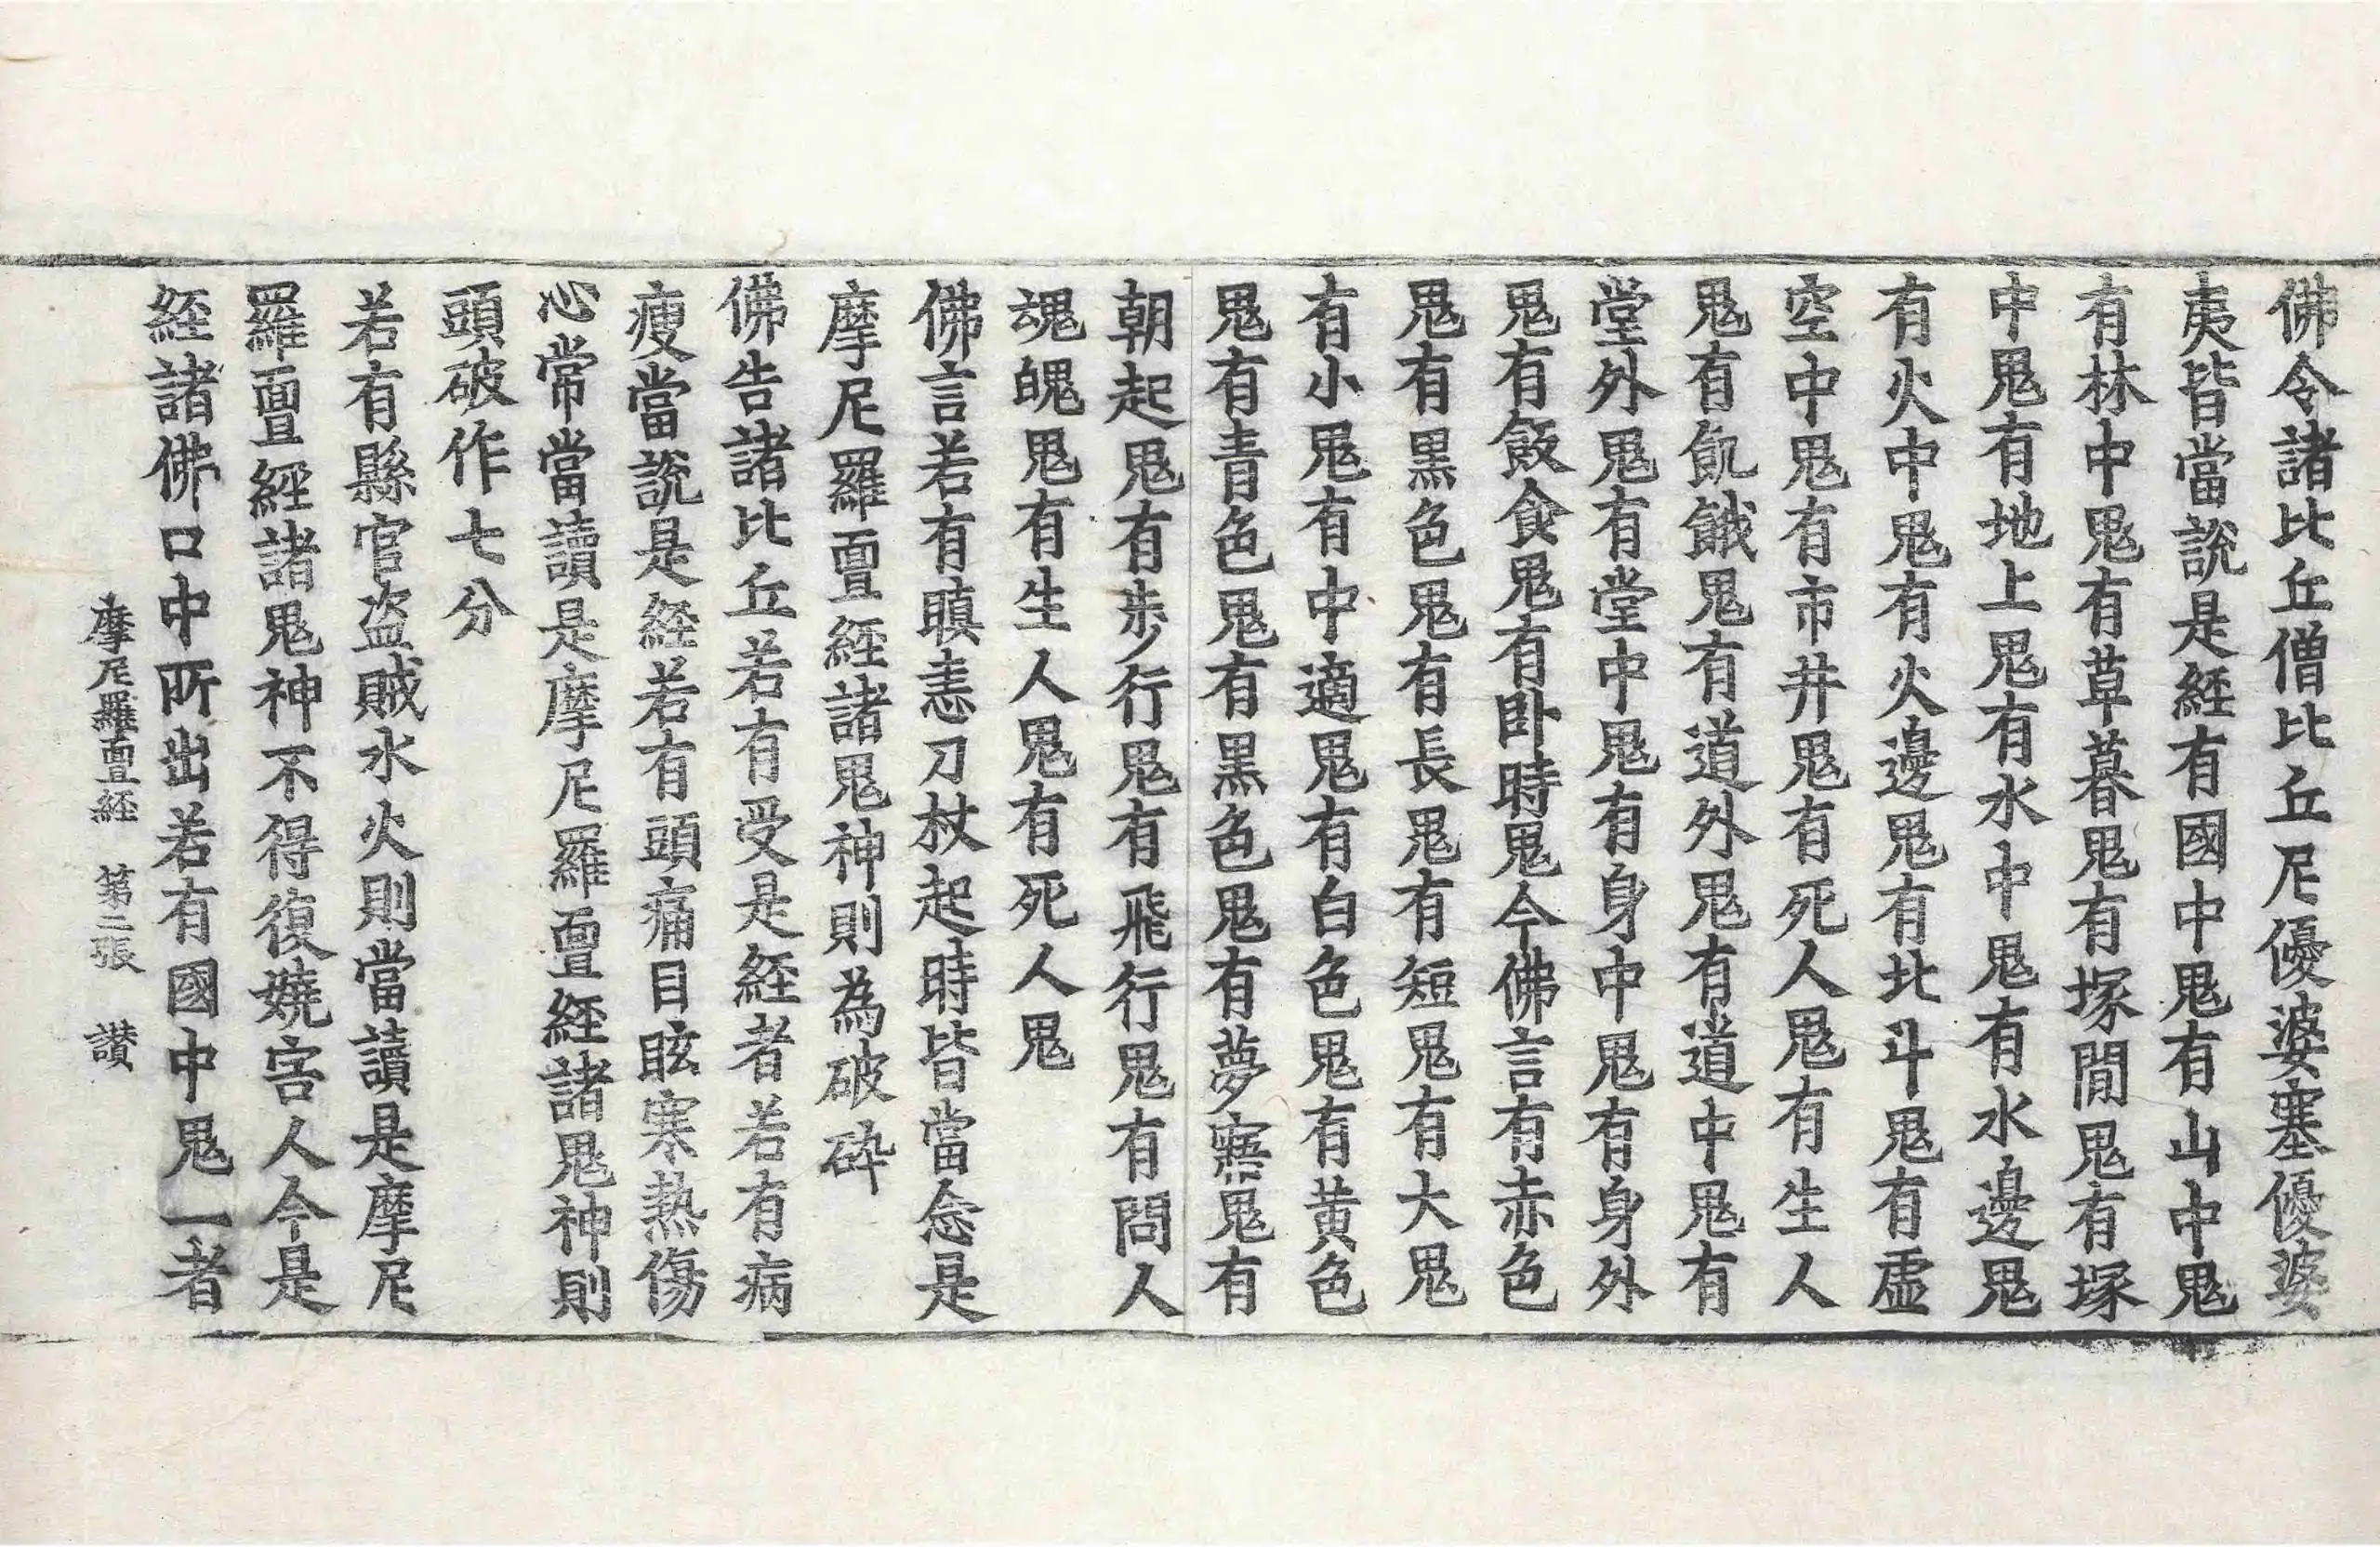 佛令諸比丘僧比丘尼優婆塞優婆
夷皆當說是經有國中鬼有山中鬼
有林中鬼有草暮鬼有塚間鬼有塚
中鬼有地上鬼有水中鬼有水邊鬼
有火中鬼有火邊鬼有北斗鬼有虛
空中鬼有市井鬼有死人鬼有生人
鬼有飢餓鬼有道外鬼有道中鬼有
堂外鬼有堂中鬼有身中鬼有身外
鬼有飯食鬼有卧時鬼今佛言有赤色
鬼有黑色鬼有長鬼有短鬼有大鬼
有小鬼有中適鬼有白色鬼有黃色
鬼有青色鬼有黑色鬼有夢寤鬼有
朝起鬼有步行鬼有飛行鬼有問人
魂魄鬼有生人鬼有死人鬼
佛言若有瞋恚刀杖起時皆當念是
摩尼羅亶經諸鬼神則為破碎
佛告諸比丘若有受是經者若有病
瘦當說是經若有頭痛目眩寒熱傷
心常當讀是摩尼羅亶經諸鬼神則
頭破作七分
若有縣官盜賊水火則當讀是摩尼
羅亶經諸鬼神不得復嬈害人今是
經諸佛口中所出若有國中鬼一者
摩尼羅亶經 第二張 讃